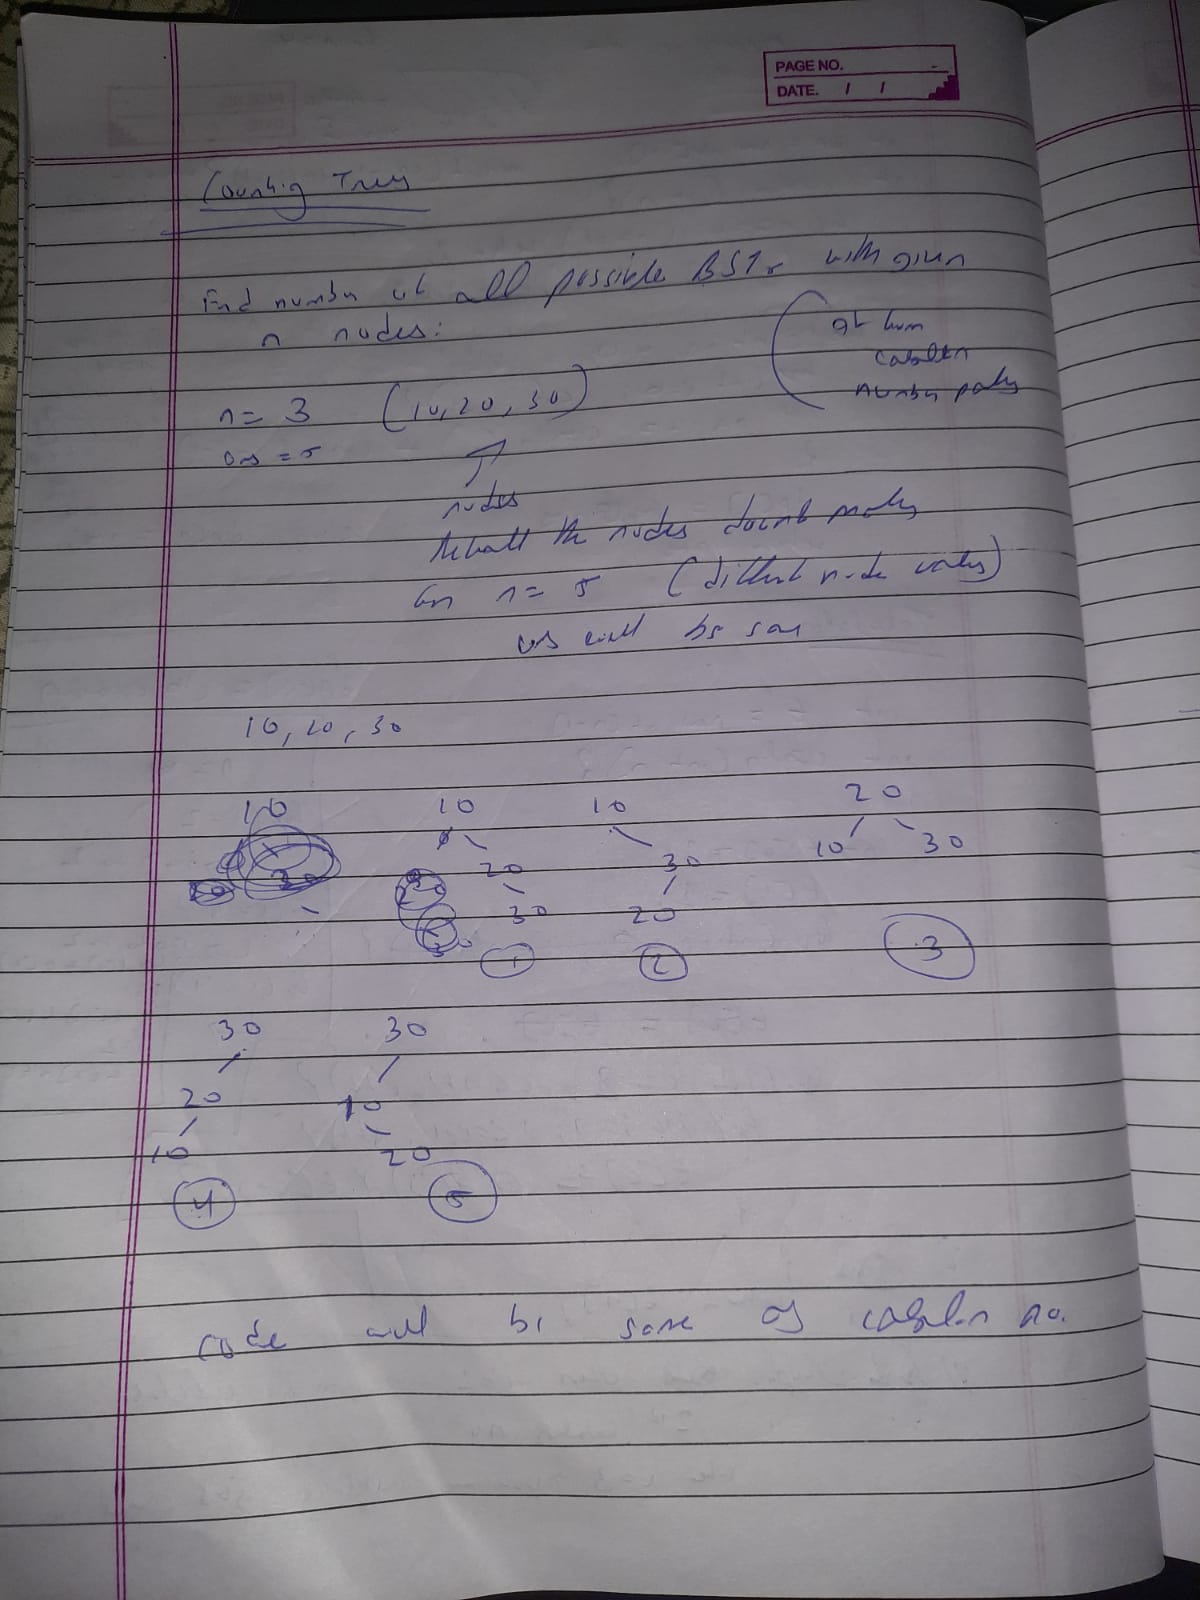 PAGE NO.
DATE. / /
Counting Trees
Find number of all possible BSTs with given
n nodes:
catalan
number
n = 3 (10, 20, 30)
ans = 5
nodes
the nodes doesnt
n = 5 (different node values)
ans will be same
10, 20, 30
10 10 10 20
20 30 10 30
30 20
1 2 3
30 30
20 10
10 20
4 5
code will be same as catalan no.